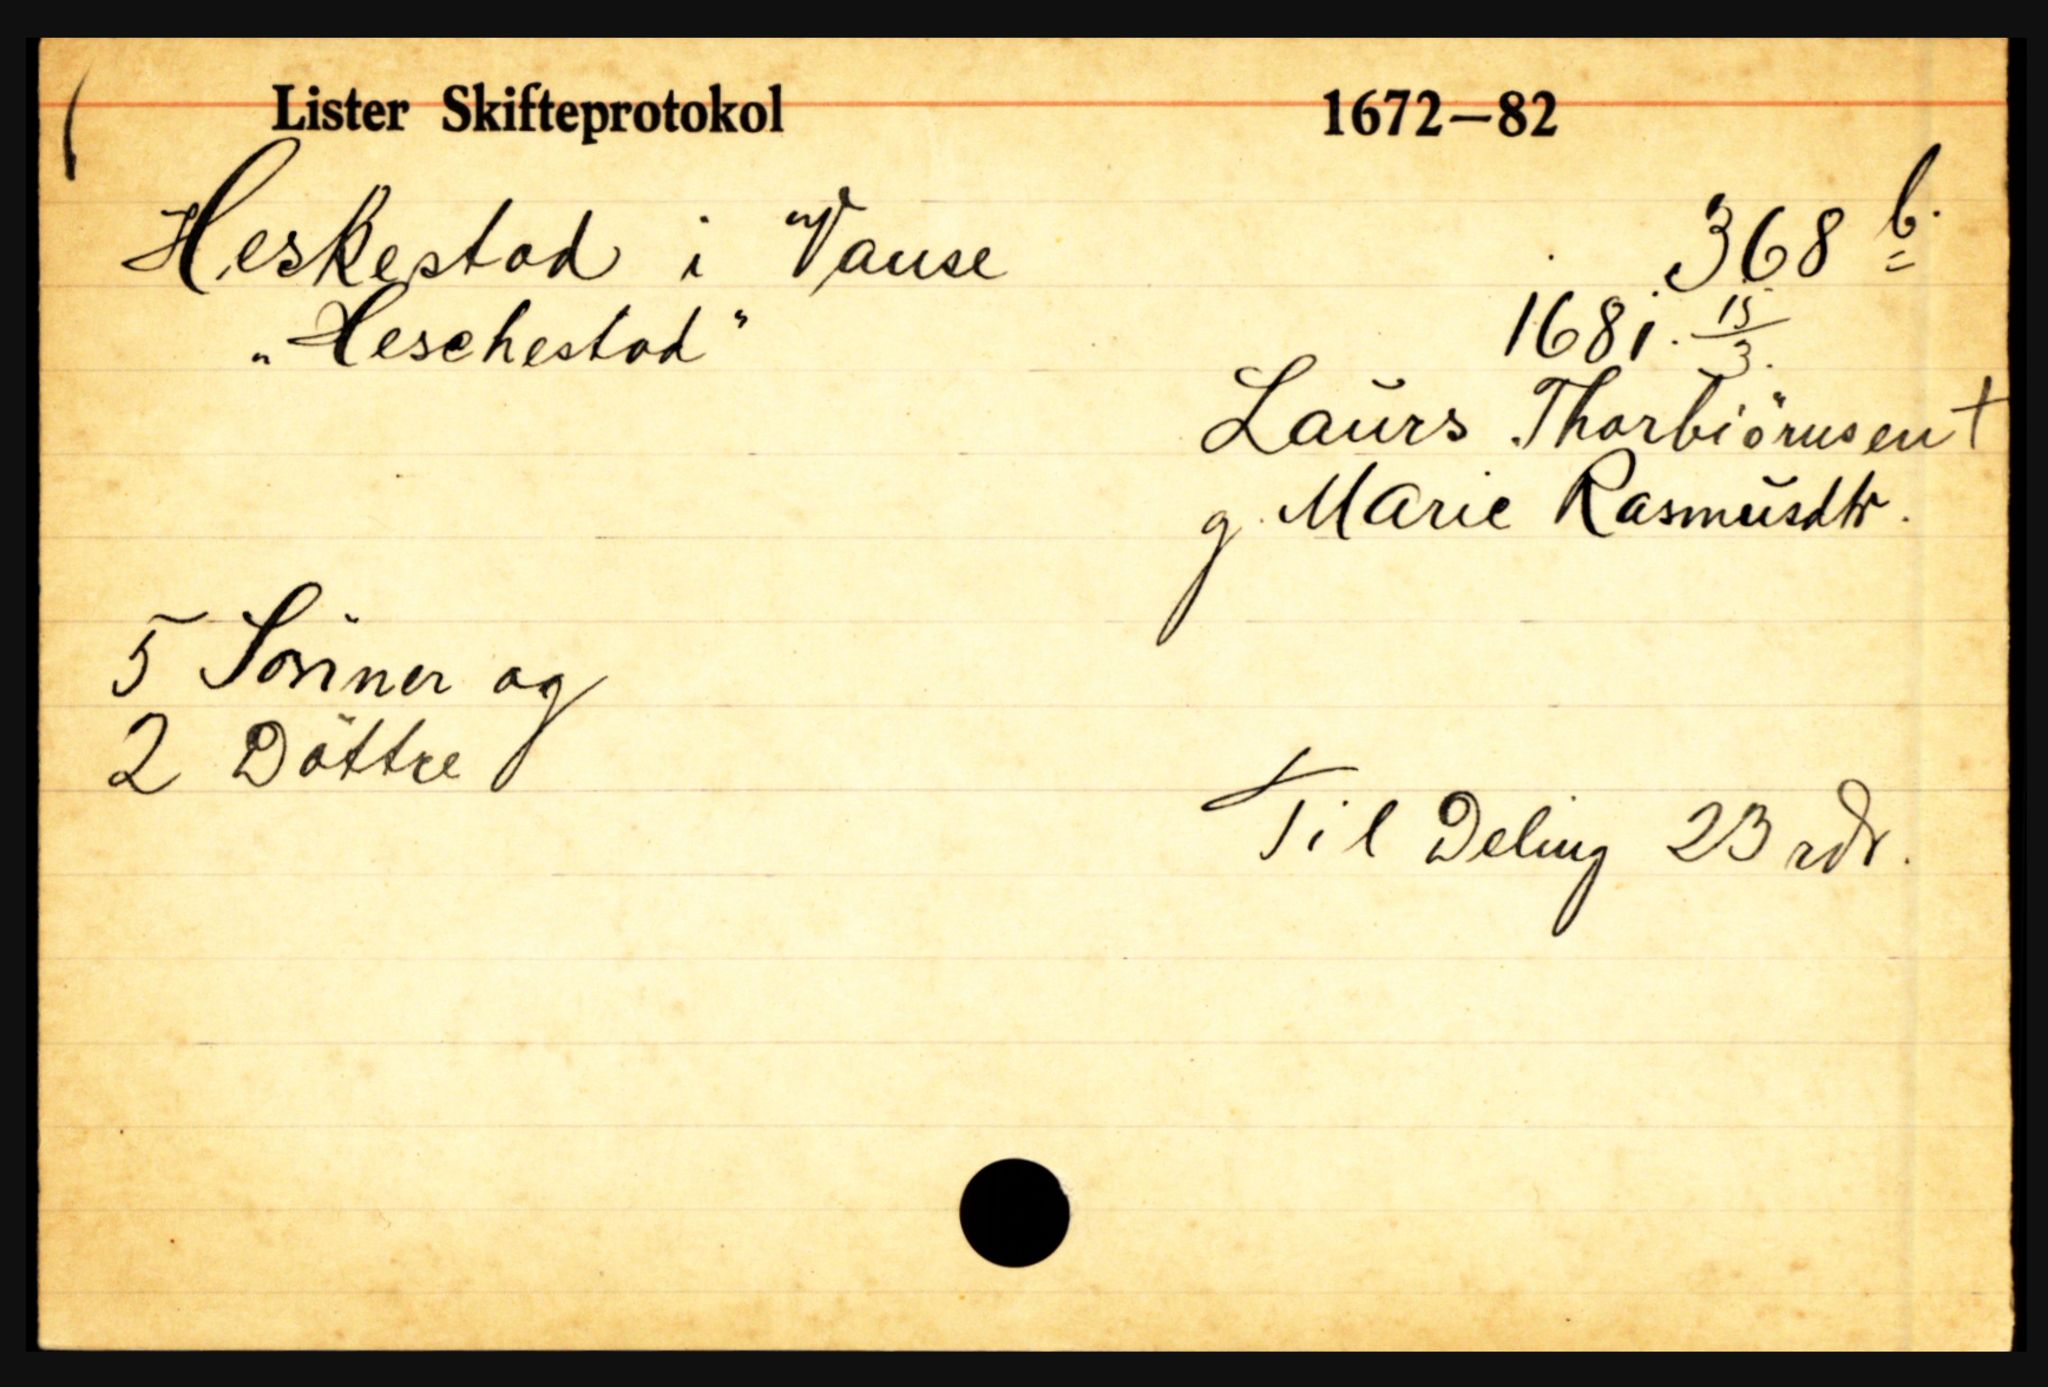 Lister Skifteprotokol 1672–82
Heskestad i Vanse 368 b.
"Heschestad" 1681. 15/3.
Laurs Thorbiörnsen †
g. Marie Rasmusdtr.
5 Sönner og
2 Döttre
Til Deling 23 rdr.